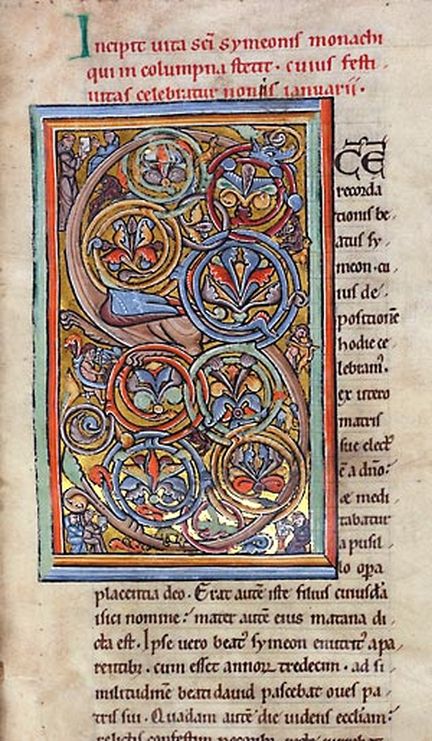 Incipit vita sc̄i symeonis monachi
qui in columpna stetit · cuius festi-
uitas celebratur nonis ianuarii ·
C̄E
recorda-
tionis be-
atus sy-
meon · cu-
ius de-
positionē
hodie ce-
lebram᷒
ex utero
matris
sue elect᷒
ē a dn̄o ·
æ medi-
tabatur
a pusil-
lo opa
placentia deo · Erat autē iste filius cuiusdā
isici nomine · mater autē eius matana di-
cta est · Ipse vero beat᷒ symeon enutrit᷒ a pa-
rentibꝫ · cum esset annoꝝ tredecim · ad si-
militudinē beati dauid pascebat oues pa-
tris sui · Quadam autē die uidens eccliam᷒
relictis confestim pecoribꝫ